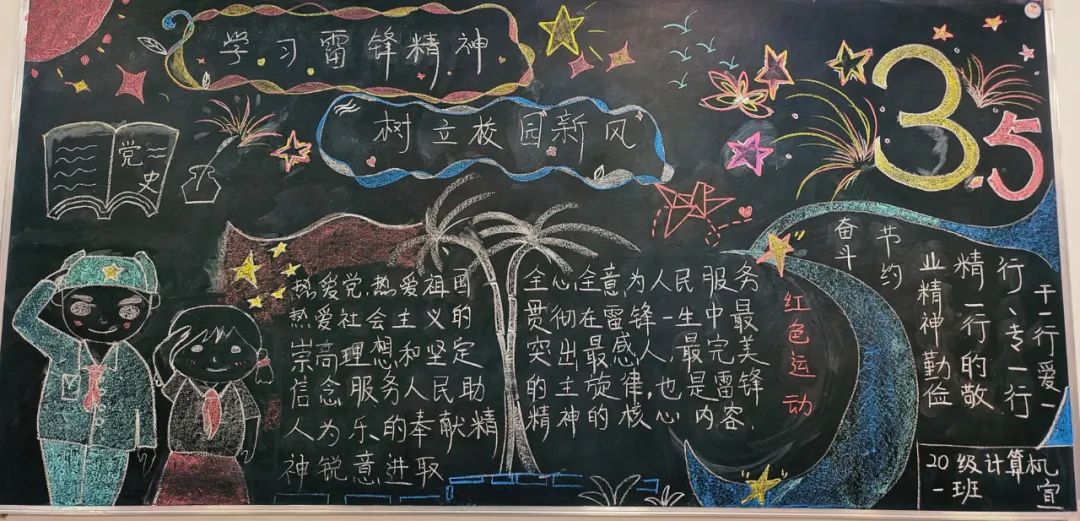 学习雷锋精神
树立校园新风
3.5
党
史
热爱党,热爱祖国
热爱社会主义的
崇高理想和坚定
信念服务人民助
人为乐的奉献精
神锐意进取
全心全意为人民服务
贯彻在雷锋一生中最
突出最感人,最完美
的主旋律,也是雷锋
精神的核心内容.
红色运动
干一行爱一
行、专一行
精一行的敬
业精神勤俭
节约
奋斗
20级计算机
一班 宣